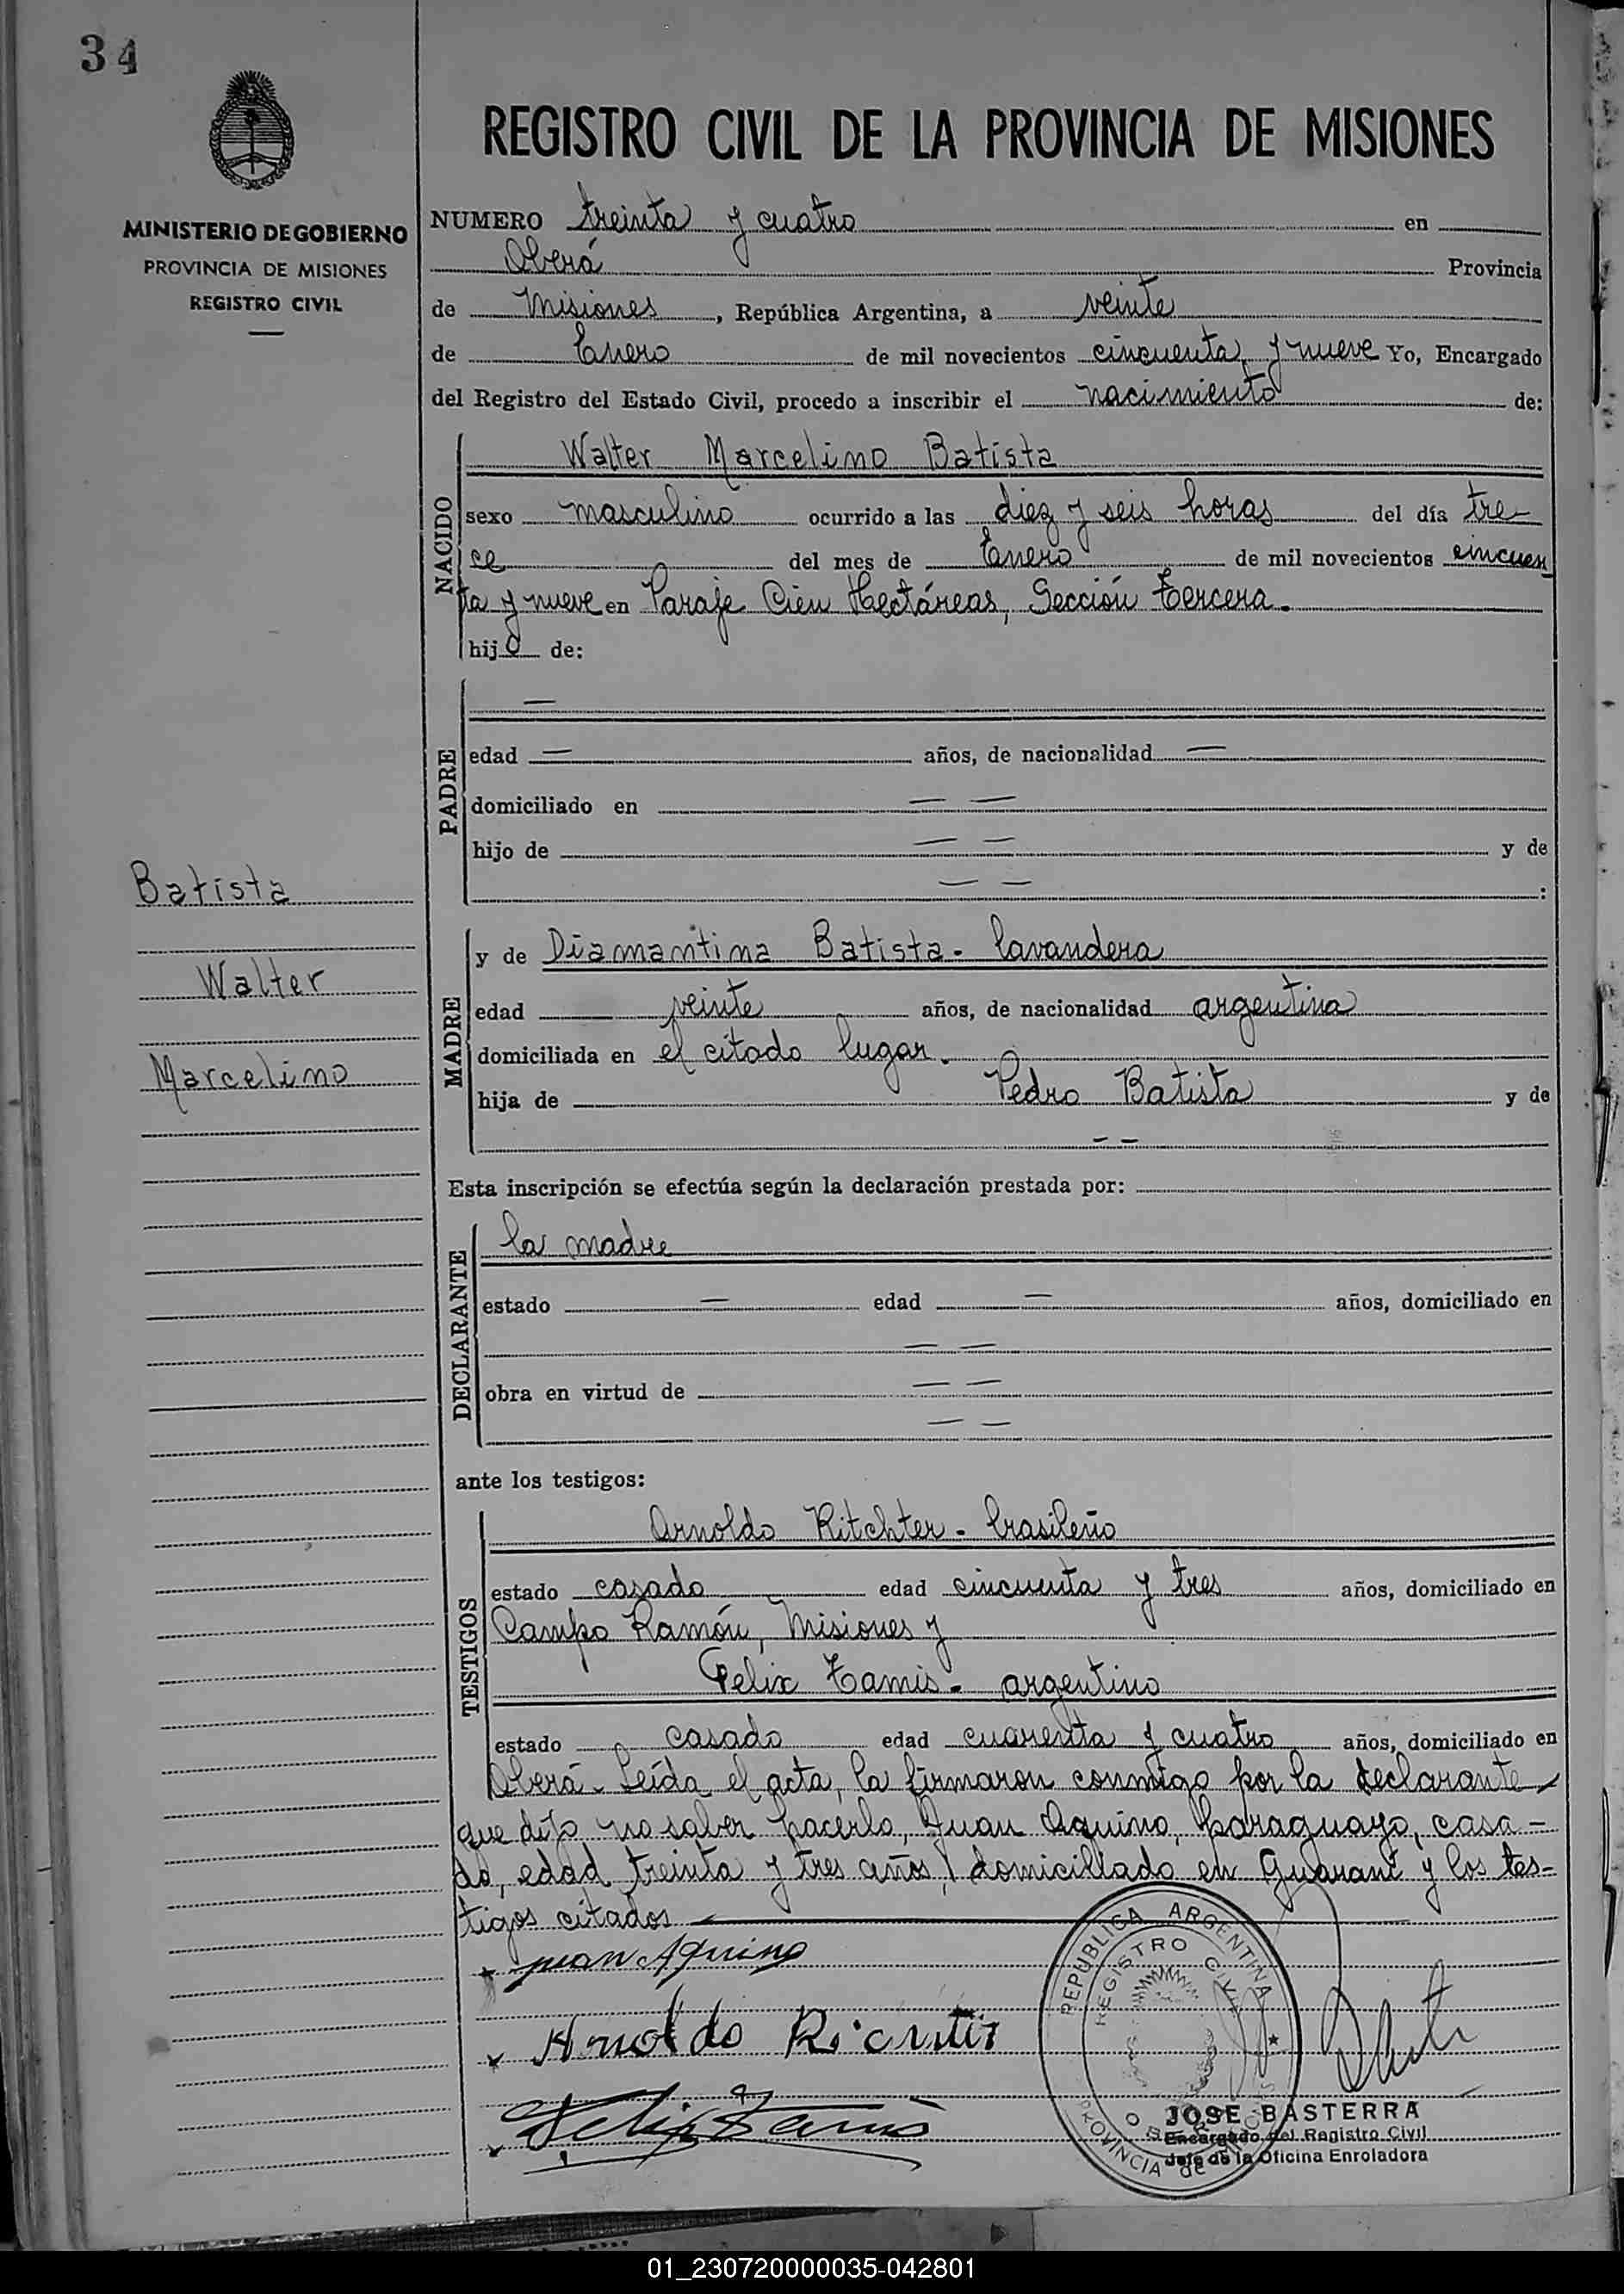 34
MINISTERIO DE GOBIERNO
PROVINCIA DE MISIONES
REGISTRO CIVIL
REGISTRO CIVIL DE LA PROVINCIA DE MISIONES
NUMERO treinta y cuatro en
Oberá Provincia
de Misiones, República Argentina, a veinte
de Enero de mil novecientos cincuenta y nueve Yo, Encargado
del Registro del Estado Civil, procedo a inscribir el nacimiento de:
NACIDO
Walter Marcelino Batista
sexo masculino ocurrido a las diez y seis horas del día tre-
ce del mes de Enero de mil novecientos cincuen
ta y nueve en Paraje Cien Hectáreas, Sección Tercera.
hijo de:
PADRE
—
edad — años, de nacionalidad —
domiciliado en — —
hijo de — — y de
— — :
Batista
Walter
Marcelino
MADRE
y de Diamantina Batista - lavandera
edad veinte años, de nacionalidad argentina
domiciliada en el citado lugar.
hija de Pedro Batista y de
- -
Esta inscripción se efectúa según la declaración prestada por:
DECLARANTE
la madre
estado — edad — años, domiciliado en
— —
obra en virtud de — —
— —
ante los testigos:
TESTIGOS
Arnoldo Ritchter - brasileño
estado casado edad cincuenta y tres años, domiciliado en
Campo Ramón, Misiones y
Felix Tamis - argentino
estado casado edad cuarenta y cuatro años, domiciliado en
Oberá - Leída el acta, la firmaron conmigo por la declarante
que dijo no saber hacerlo, Juan Aquino, paraguayo, casa-
do, edad treinta y tres años, domiciliado en Guaraní y los tes-
tigos citados
Juan Aquino
Arnoldo Ricntir
Felix Tamis
REPUBLICA ARGENTINA
REGISTRO CIVIL
PROVINCIA DE
JOSE BASTERRA
Encargado del Registro Civil
Jefe de la Oficina Enroladora
01_230720000035-042801